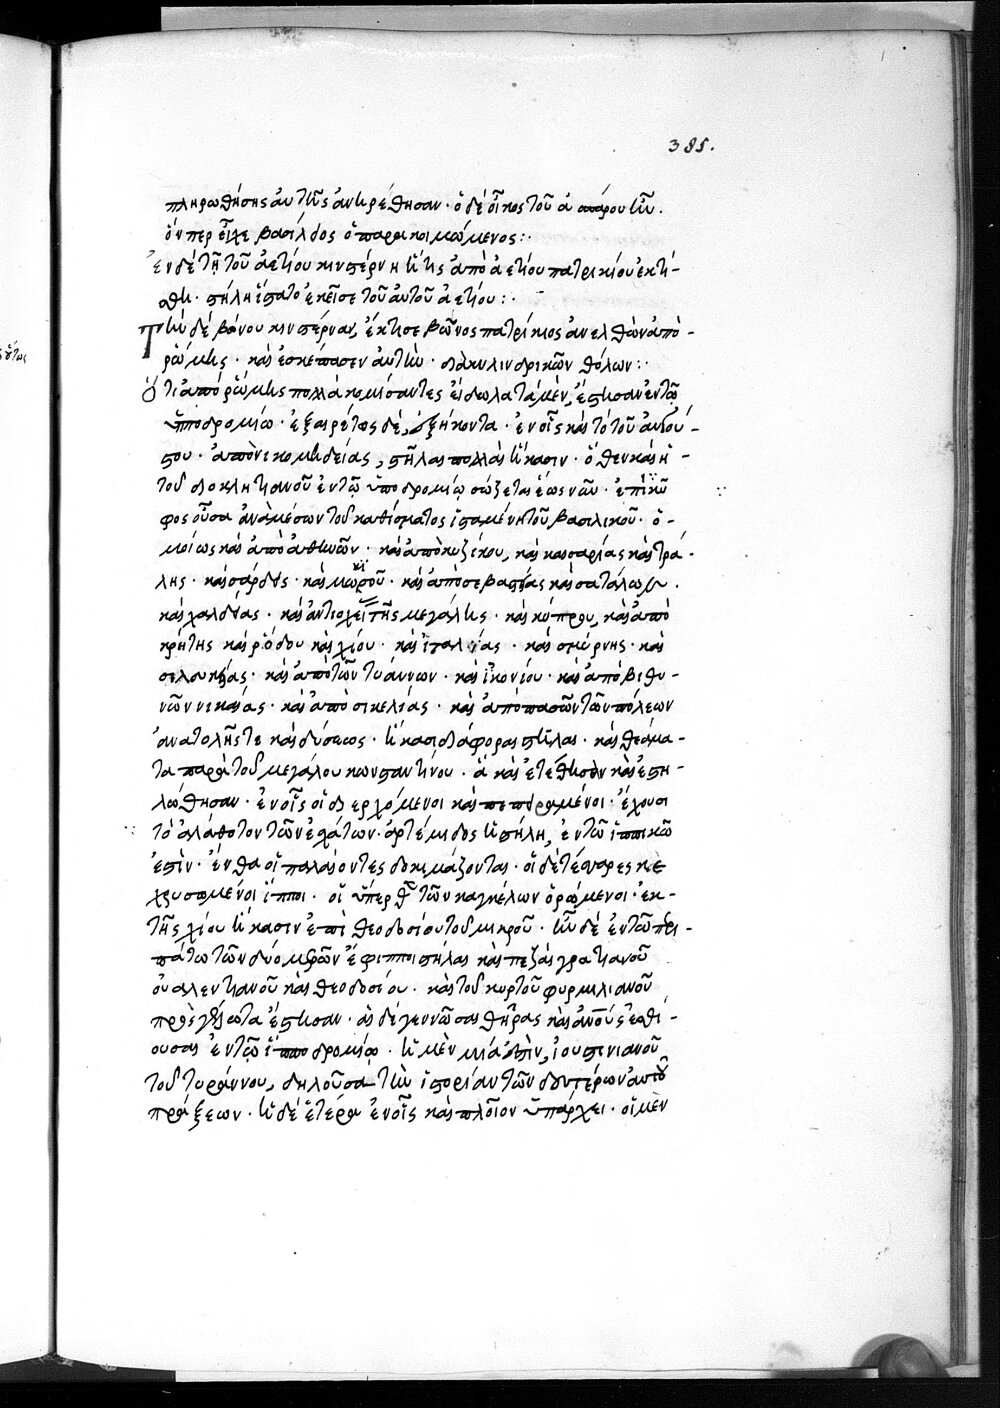 385.
πληρωθείσης αὐτῆς ἀνῃρέθησαν · ὁ δὲ οἶκος τοῦ ἀπάρου ἦν.
ὅνπερ εἶχε βασίλειος ὁ παρακοιμώμενος :·
Ἐν δὲ τῇ τοῦ ἀετίου κινστέρνῃ ἥτις ἀπὸ ἀετίου πατρικίου ἐκτί-
σθη · στήλη ἵστατο ἐκεῖσε τοῦ αὐτοῦ ἀετίου :·
Τὴν δὲ βώνου κινστέρναν, ἔκτισε βῶνος πατρίκιος ἀνελθὼν ἀπὸ-
ῥώμης · καὶ ἐσκέπασεν αὐτὴν · διὰ κυλινδρικῶν θόλων :·
Ὅτι ἀπὸ ῥώμης πολλὰ κομίσαντες εἴδωλα τὰ μὲν, ἔστησαν ἐν τῷ
ὑποδρομίῳ · ἐξαιρέτως δὲ, ἑξήκοντα · ἐν οἷς καὶ τὸ τοῦ αὐγού-
στου · ἀπὸ νικομηδείας, στῆλαι πολλαὶ ἥκασιν · ὅθεν καὶ ἡ-
τοῦ διοκλητιανοῦ ἐν τῷ ὑποδρομίῳ σώζεται ἕως νῦν · ἐπίκυ
φος οὖσα ἀνάμεσον τοῦ καθίσματος ἱσταμένη τοῦ βασιλικοῦ · ὁ-
μοίως καὶ ἀπὸ ἀθηνῶν · καὶ ἀπὸ κυζίκου, καὶ καισαρίας καὶ τρά-
λης · καὶ σάρδης · καὶ μωκισοῦ · καὶ ἀπὸ σεβαστίας καὶ σατάλων .
καὶ χαλδίας · καὶ ἀντιοχείας τῆς μεγάλης · καὶ κύπρου, καὶ ἀπὸ
κρήτης καὶ ῥόδου καὶ χίου · καὶ ἰταλίας · καὶ σμύρνης · καὶ
σελευκείας · καὶ ἀπὸ τῶν τυάννων · καὶ ἰκονίου · καὶ ἀπὸ βιθυ-
νῶν νικαίας · καὶ ἀπὸ σικελίας · καὶ ἀπὸ πασῶν τῶν πόλεων
ἀνατολῆς τε καὶ δύσεως · ἥκασι διάφοραι στῆλαι · καὶ θεάμα-
τα παρὰ τοῦ μεγάλου κωνσταντίνου · ἃ καὶ ἐτέθησαν καὶ ἐστη-
λώθησαν · ἐν οἷς οἱ διερχόμενοι καὶ πεπειραμένοι · ἔχουσι
τὸ ἀλάθητον τῶν ἐσχάτων · ἀρτέμιδος ἡ στήλη, ἐν τῷ ἱππικῷ
ἐστὶν · ἔνθα οἱ παλαίοντες δοκιμάζονται · οἱ δὲ τέσσαρες κε
χρυσωμένοι ἵπποι · οἱ ὕπερθεν τῶν καγκέλων ὁρώμενοι · ἐκ-
τῆς χίου ἥκασιν ἐπὶ θεοδοσίου τοῦ μικροῦ · ἦν δὲ ἐν τῷ περι-
πάτῳ τῶν δύο μερῶν ἔφιπποι στήλαι καὶ πεζαὶ γρατιανοῦ
οὐαλεντιανοῦ καὶ θεοδοσίου · καὶ τοῦ κυρτοῦ φυρμιλιανοῦ
πρὸς γέλωτα ἔστησαν · αἱ δὲ γεννῶσαι θῆρας καὶ ἀνους ἐσθί-
ουσαι ἐν τῷ ἱπποδρομίῳ · ἡ μὲν μία ἐστὶν, ἰουστινιανοῦ
τοῦ τυράννου, δηλοῦσα τὴν ἱστορίαν τῶν δευτέρων αὐτοῦ
πράξεων · ἡ δὲ ἑτέρα ἐν οἷς καὶ πλοῖον ὑπάρχει · οἱ μὲν